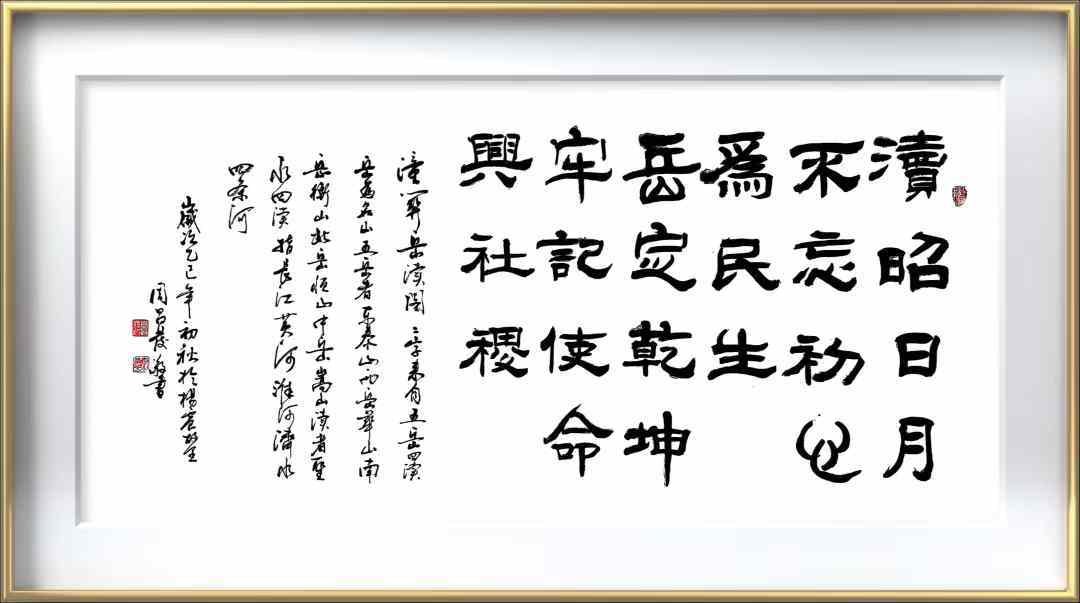 瀆昭日月
不忘初心
爲民生
岳定乾坤
牢記使命
興社稷
潼关岳渎阁二字来自五岳四渎
岳为名山五岳者东泰山西岳華山南
岳衡山北岳恒山中岳嵩山渎者聖
水四渎指長江黄河淮河濟水
四条河
歲次乙巳年初秋於楊
周昌書